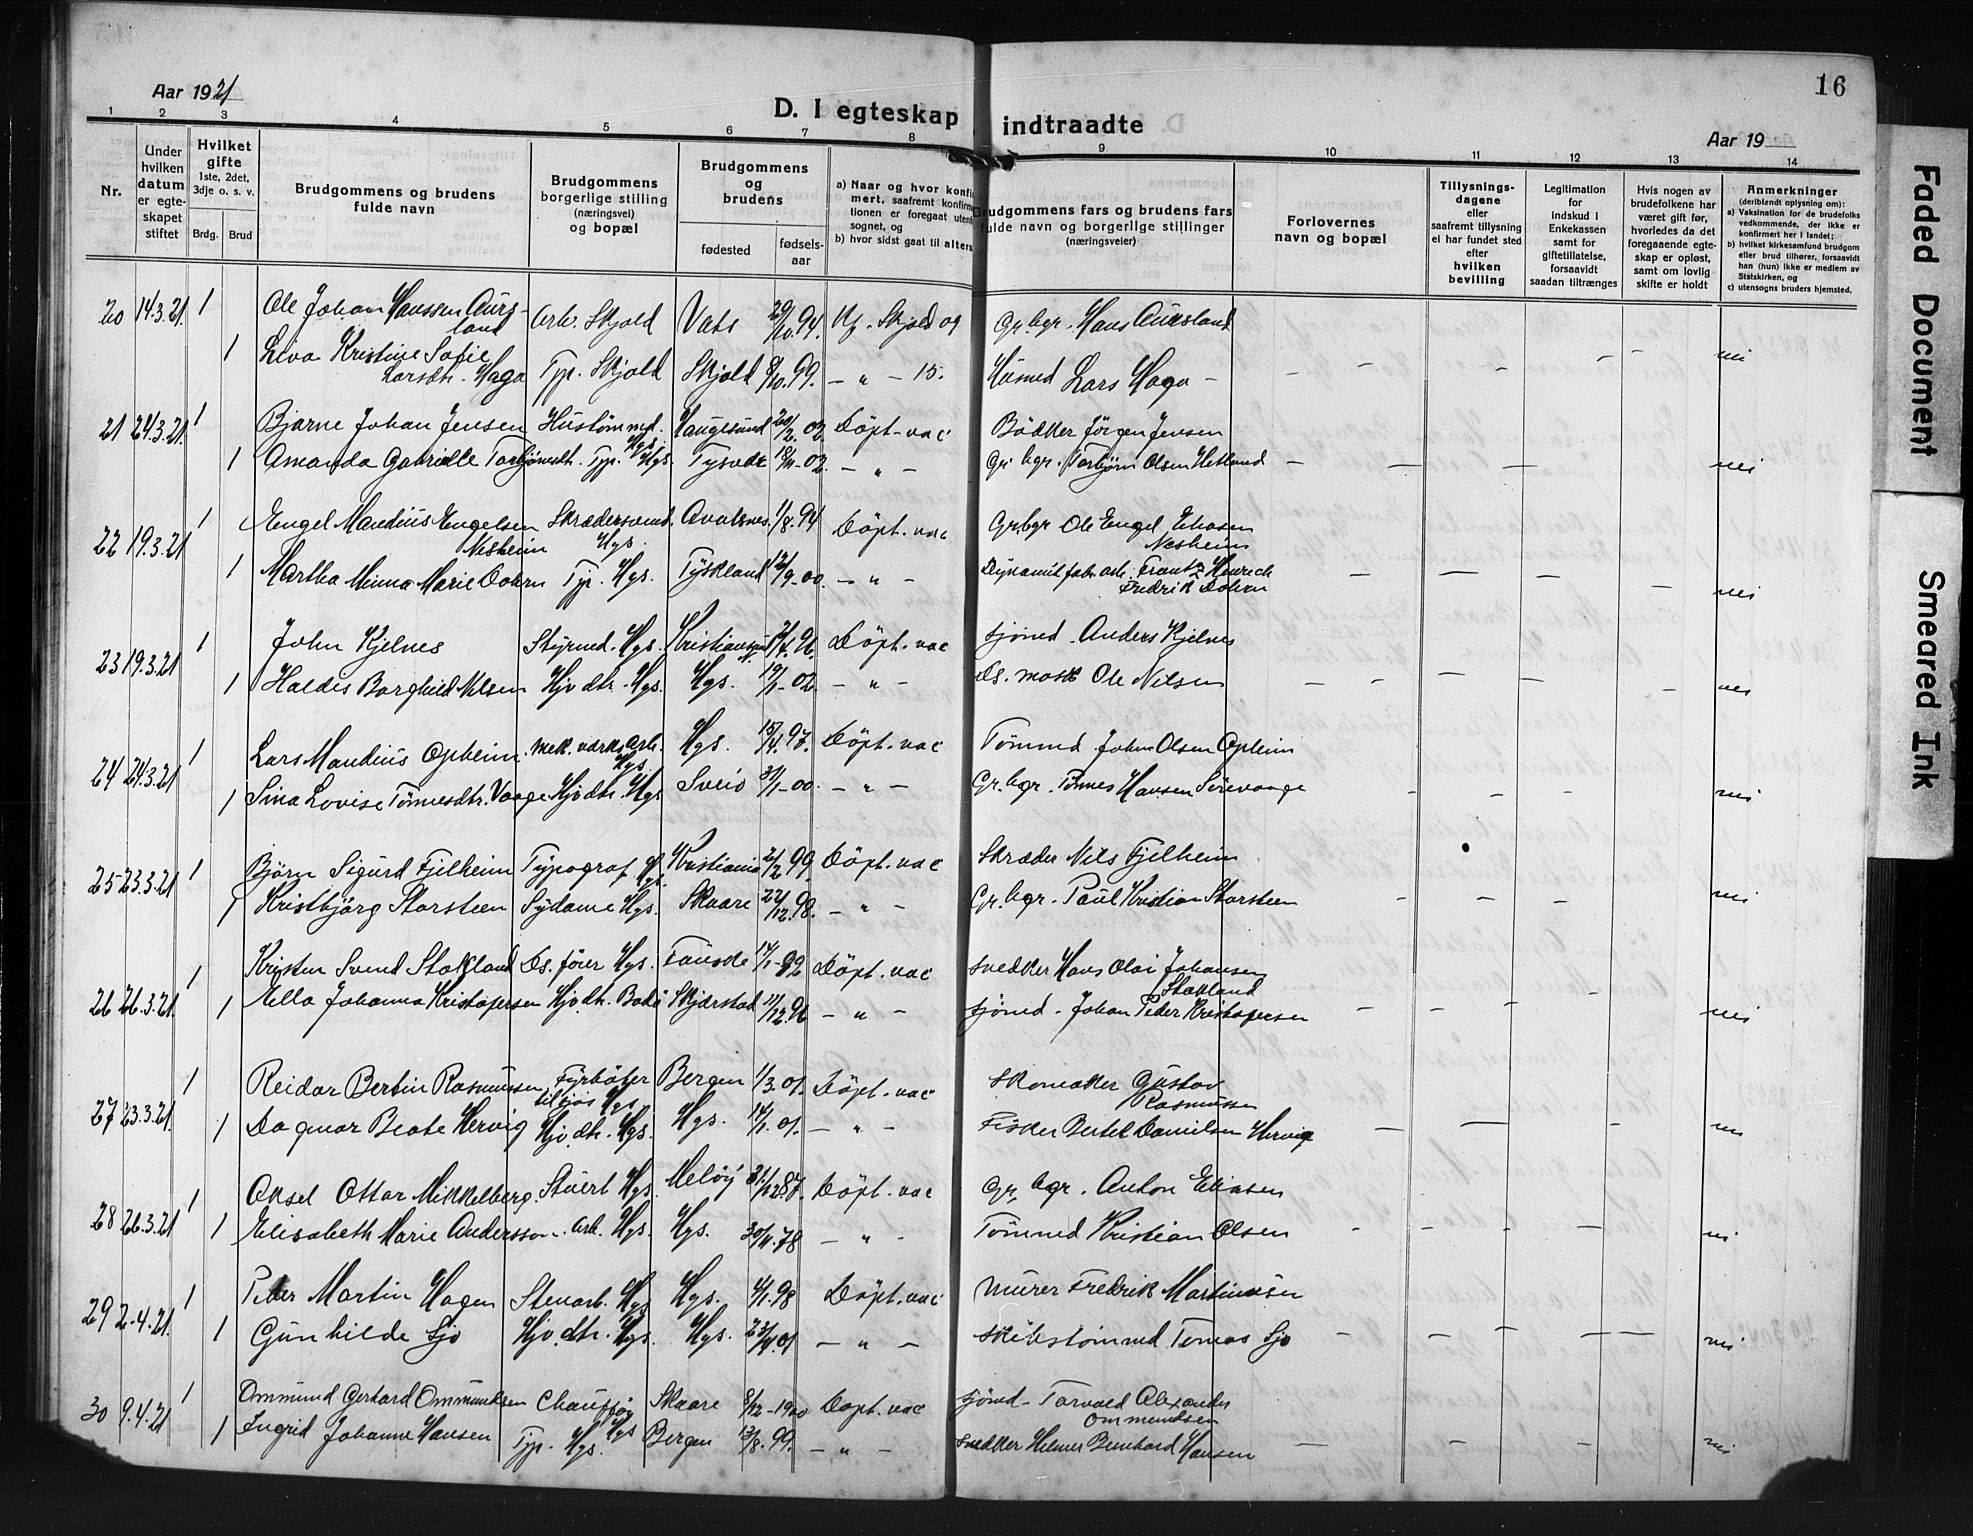 Aar 1921
D. I egteskap indtraadte
16
Aar 19
1 2 3 4 5 6 7 8 9 10 11 12 13 14
Nr.
Under hvilken datum er egteskapet stiftet
Hvilket gifte 1ste, 2det, 3dje o. s. v.
Brdg. Brud
Brudgommens og brudens fulde navn
Brudgommens borgerlige stilling (næringsvei) og bopæl
Brudgommens og brudens
fødested fødselsaar
a) Naar og hvor konfirmert, saafremt konfirmationen er foregaat utenfor sognet, og
b) hvor sidst gaat til alters
Brudgommens fars og brudens fars fulde navn og borgerlige stillinger (næringsveier)
Forlovernes navn og bopæl
Tillysningsdagene eller saafremt tillysning ei har fundet sted efter hvilken bevilling
Legitimation for indskud i Enkekassen samt for giftetillatelse, forsaavidt saadan tiltrænges
Hvis nogen av brudefolkene har været gift før, hvorledes da det foregaaende egteskap er opløst, samt om lovlig skifte er holdt
Anmerkninger (deriblandt oplysning om):
a) Vaksination for de brudefolks vedkommende, der ikke er konfirmert her i landet;
b) hvilket kirkesamfund brudgom eller brud tilhører, forsaavidt han (hun) ikke er medlem av Statskirken, og
c) utensogns bruders hjemsted.
20 14.3.21. 1 Ole Johan Hanssen Aursland Arb. Skjold Vats 29/10.94. Kf. Skjold og Gr.bgr. Hans Aursland
1 Liva Kristine Sofie Larsdtr. Haga Tjp. Skjold Skjold 8/10.99. — " — 15. Husmd Lars Haga — nei
21 24.3.21. 1 Bjarne Johan Jensen Hustømmd. Hgs. Haugesund 20/2.02. Döpt. vac Bödker Jörgen Jensen
1 Amanda Gabrielle Torbjörnsdtr. Tjp. Hgs. Tysvær 18/11-02. — " — Gr.bgr. Torbjörn Olsen Hetland nei
22 19.3.21 1 Engel Mandius Engelsen Nesheim Skrædersvend Hgs. Avalsnes 1/8.94 Döpt. vac Gr.bgr Ole Engel Eliasen Nesheim
1 Martha Minna Marie Dohrn Tjp. Hgs. Tyskland 12/9-00. — " — Dynamit fabr. arb. Frantz Heinrich Fredrik Dohrn nei
23 19.3.21 1 John Kjelnes Styrmd. Hgs. Kristianssund N. 4.96. Döpt. vac Sjömd. Anders Kjelnes
1 Haldis Borghild Nilsen Hjv. dtr. Hgs. Hgs. 19/1-02. — " — Ds. mask Ole Nilsen nei
24 24.3.21 1 Lars Mandius Opheim Mek. værks. arb. Hgs. Hgs. 15/4.97. Döpt. vac Tömmd. John Olsen Opheim
1 Sina Lovise Tönnesdtr. Vaage Hjv. dtr. Hgs Sveio 31/1-00. — " — Gr.bgr. Tönnes Hansen Sörevaage nei
25 23.3.21 1 Björn Sigurd Fjelheim Typograf Hgs. Kristiania 2/2.99 Döpt. vac Skræder Nils Fjelheim
1 Kristbjörg Storsteen Sydame Hgs. Skaare 22/12.98. — " — Gr.bgr. Paul Kristian Storsteen nei
26 26.3.21. 1 Kristen Svend Stokland Ds. före Hgs. Fauske 14/1-92 Döpt. vac Snedker Hans Olai Johansen Stokland
1 Ella Johanna Kristofersen Hjv. dtr. Bodö Skjærstad 11/12.96 — " — Sjömd. Johan Peder Kristofersen nei
27 23.3.21. 1 Reidar Berlin Rasmussen Fyrböter tilsjös Hgs Bergen 1/3.01. Döpt. vac Skomaker Gustav Rasmussen
1 Dagmar Beate Hervig Hjv. dtr. Hgs. Hgs. 14/1.01. — " — Fisker Bertel Danielsen Hervig nei
28 26.3.21 1 Aksel Ottar Mikkelborg. Stuert Hgs. Melöy 31/12.87. Döpt. vac Gr. bgr. Anton Eliasen
1 Elisabeth Marie Andersson. Arb. Hgs. Hgs. 30/11.78 — " — Tömmd Kristian Olsen nei
29 2.4.21. 1 Peder Martin Hagen Stenarb. Hgs Hgs. 4/1.98 Döpt. vac Murer Fredrik Martinsen
1 Gunhilde Sjo Hjv. dtr. Hgs. Hgs. 23/4.01 — " — Skibstömmd. Tomas Sjo nei
30 9.4.21 1 Ommund Gerhard Ommundsen Chauffør Hgs Skaare 8/12-1900 Döpt. vac Sjömd. Torvald Alexander Ommundsen
1 Ingrid Johanne Hansen Tjp. Hgs. Bergen 13/8.99. — " — Snedker Helmer Bernhard Hansen nei
Faded Document
Smeared Ink